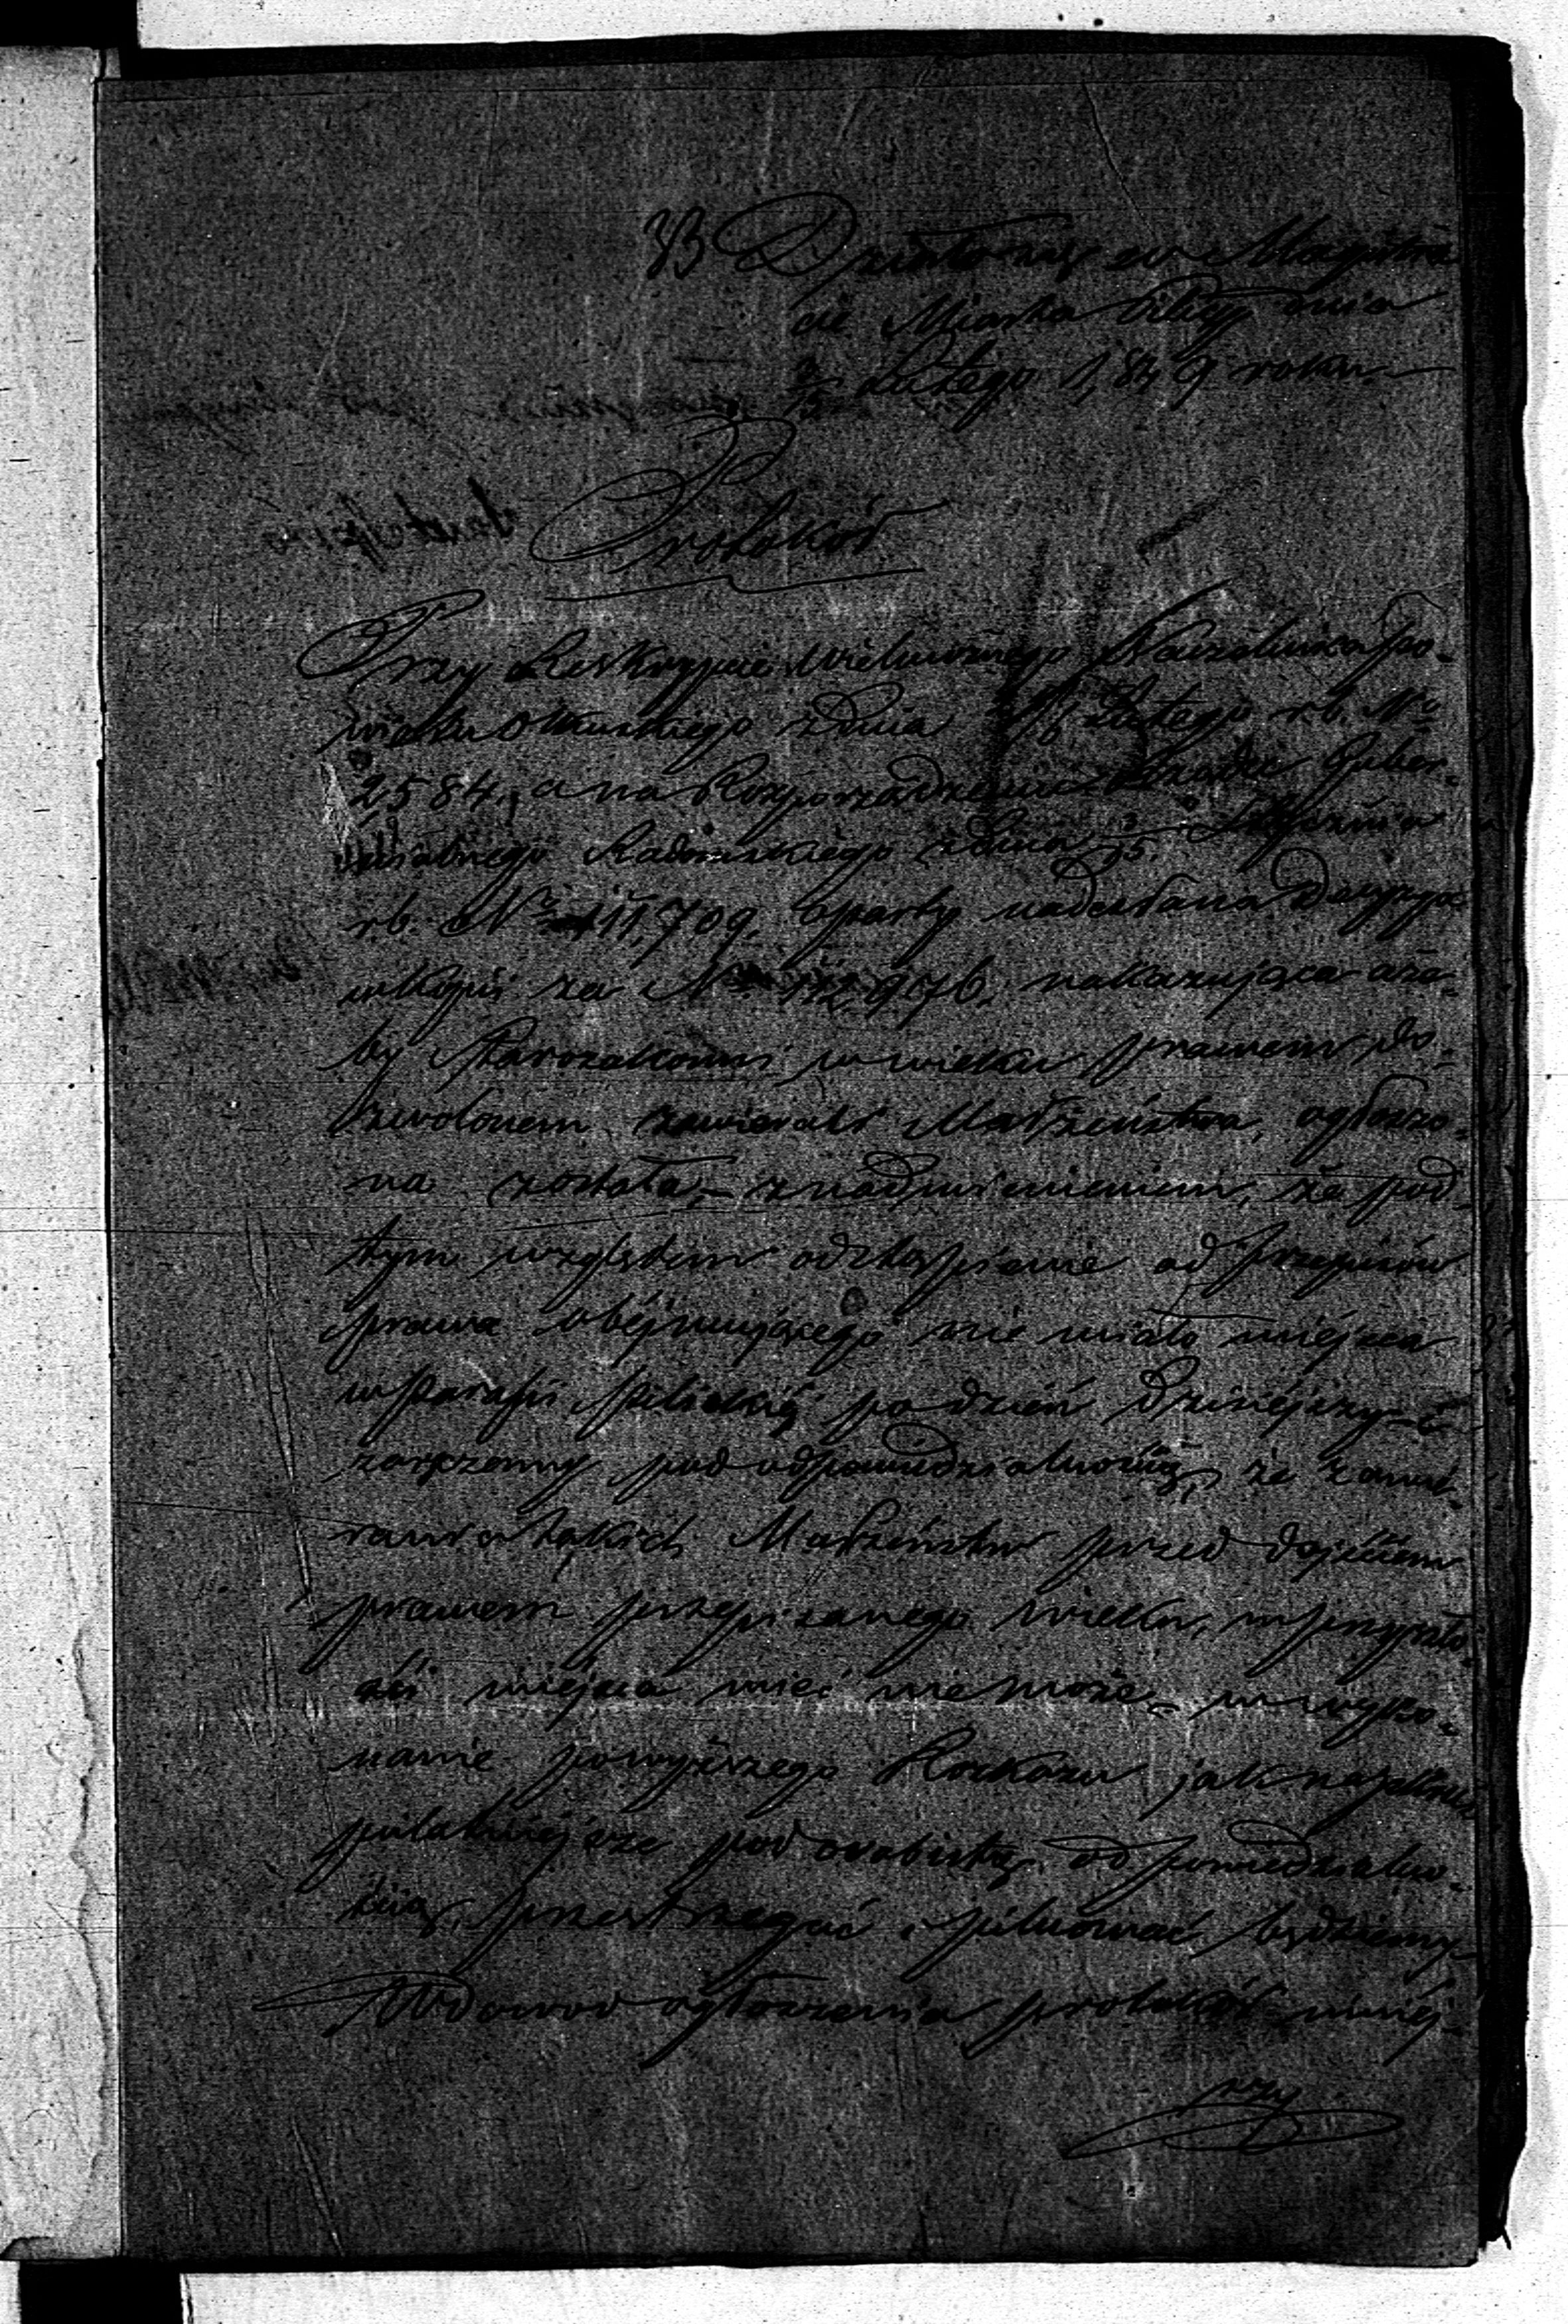 33 Działo się w Magistra
cie Miasta Pilicy dnia
Lutego 1849 roku
Protokół
Przy Reskrypcie Wielmożnego Naczelnika Po-
wiatu Olkuskiego z dnia Lutego r.b. No
2584. a na Rozporządzeniu Rządu Guber-
nialnego Radomskiego z dnia 3/15. Stycznia
r.b. No 111,709 oparty nadesłana Decyzya
w kopii za No 976. nakazująca aże-
by Starozakonni w wieku prawem do-
zwolonem zawierali Małżeństwa, ogłoszo-
na została, z nadmienieniem, że pod
tym względem odstąpienie od przepisów
prawa obejmującego nie miało miejsca
w Parafii Pilickiej po dzień dzisiejszy
zaręczemy pod odpowiedzialnością, że zawie-
rania takich Małżeństw przed dojściem
prawem przepisanego wieku, w przyszło
ści miejsca mieć nie może, w wyko-
nanie powyższego Rozkazu jak najdo
pilniejsze pod osobistą odpowiedzialno-
ścią, przestrzegać i pilnować będziemy
W dowód ogłoszenia protokół niniej-
szy